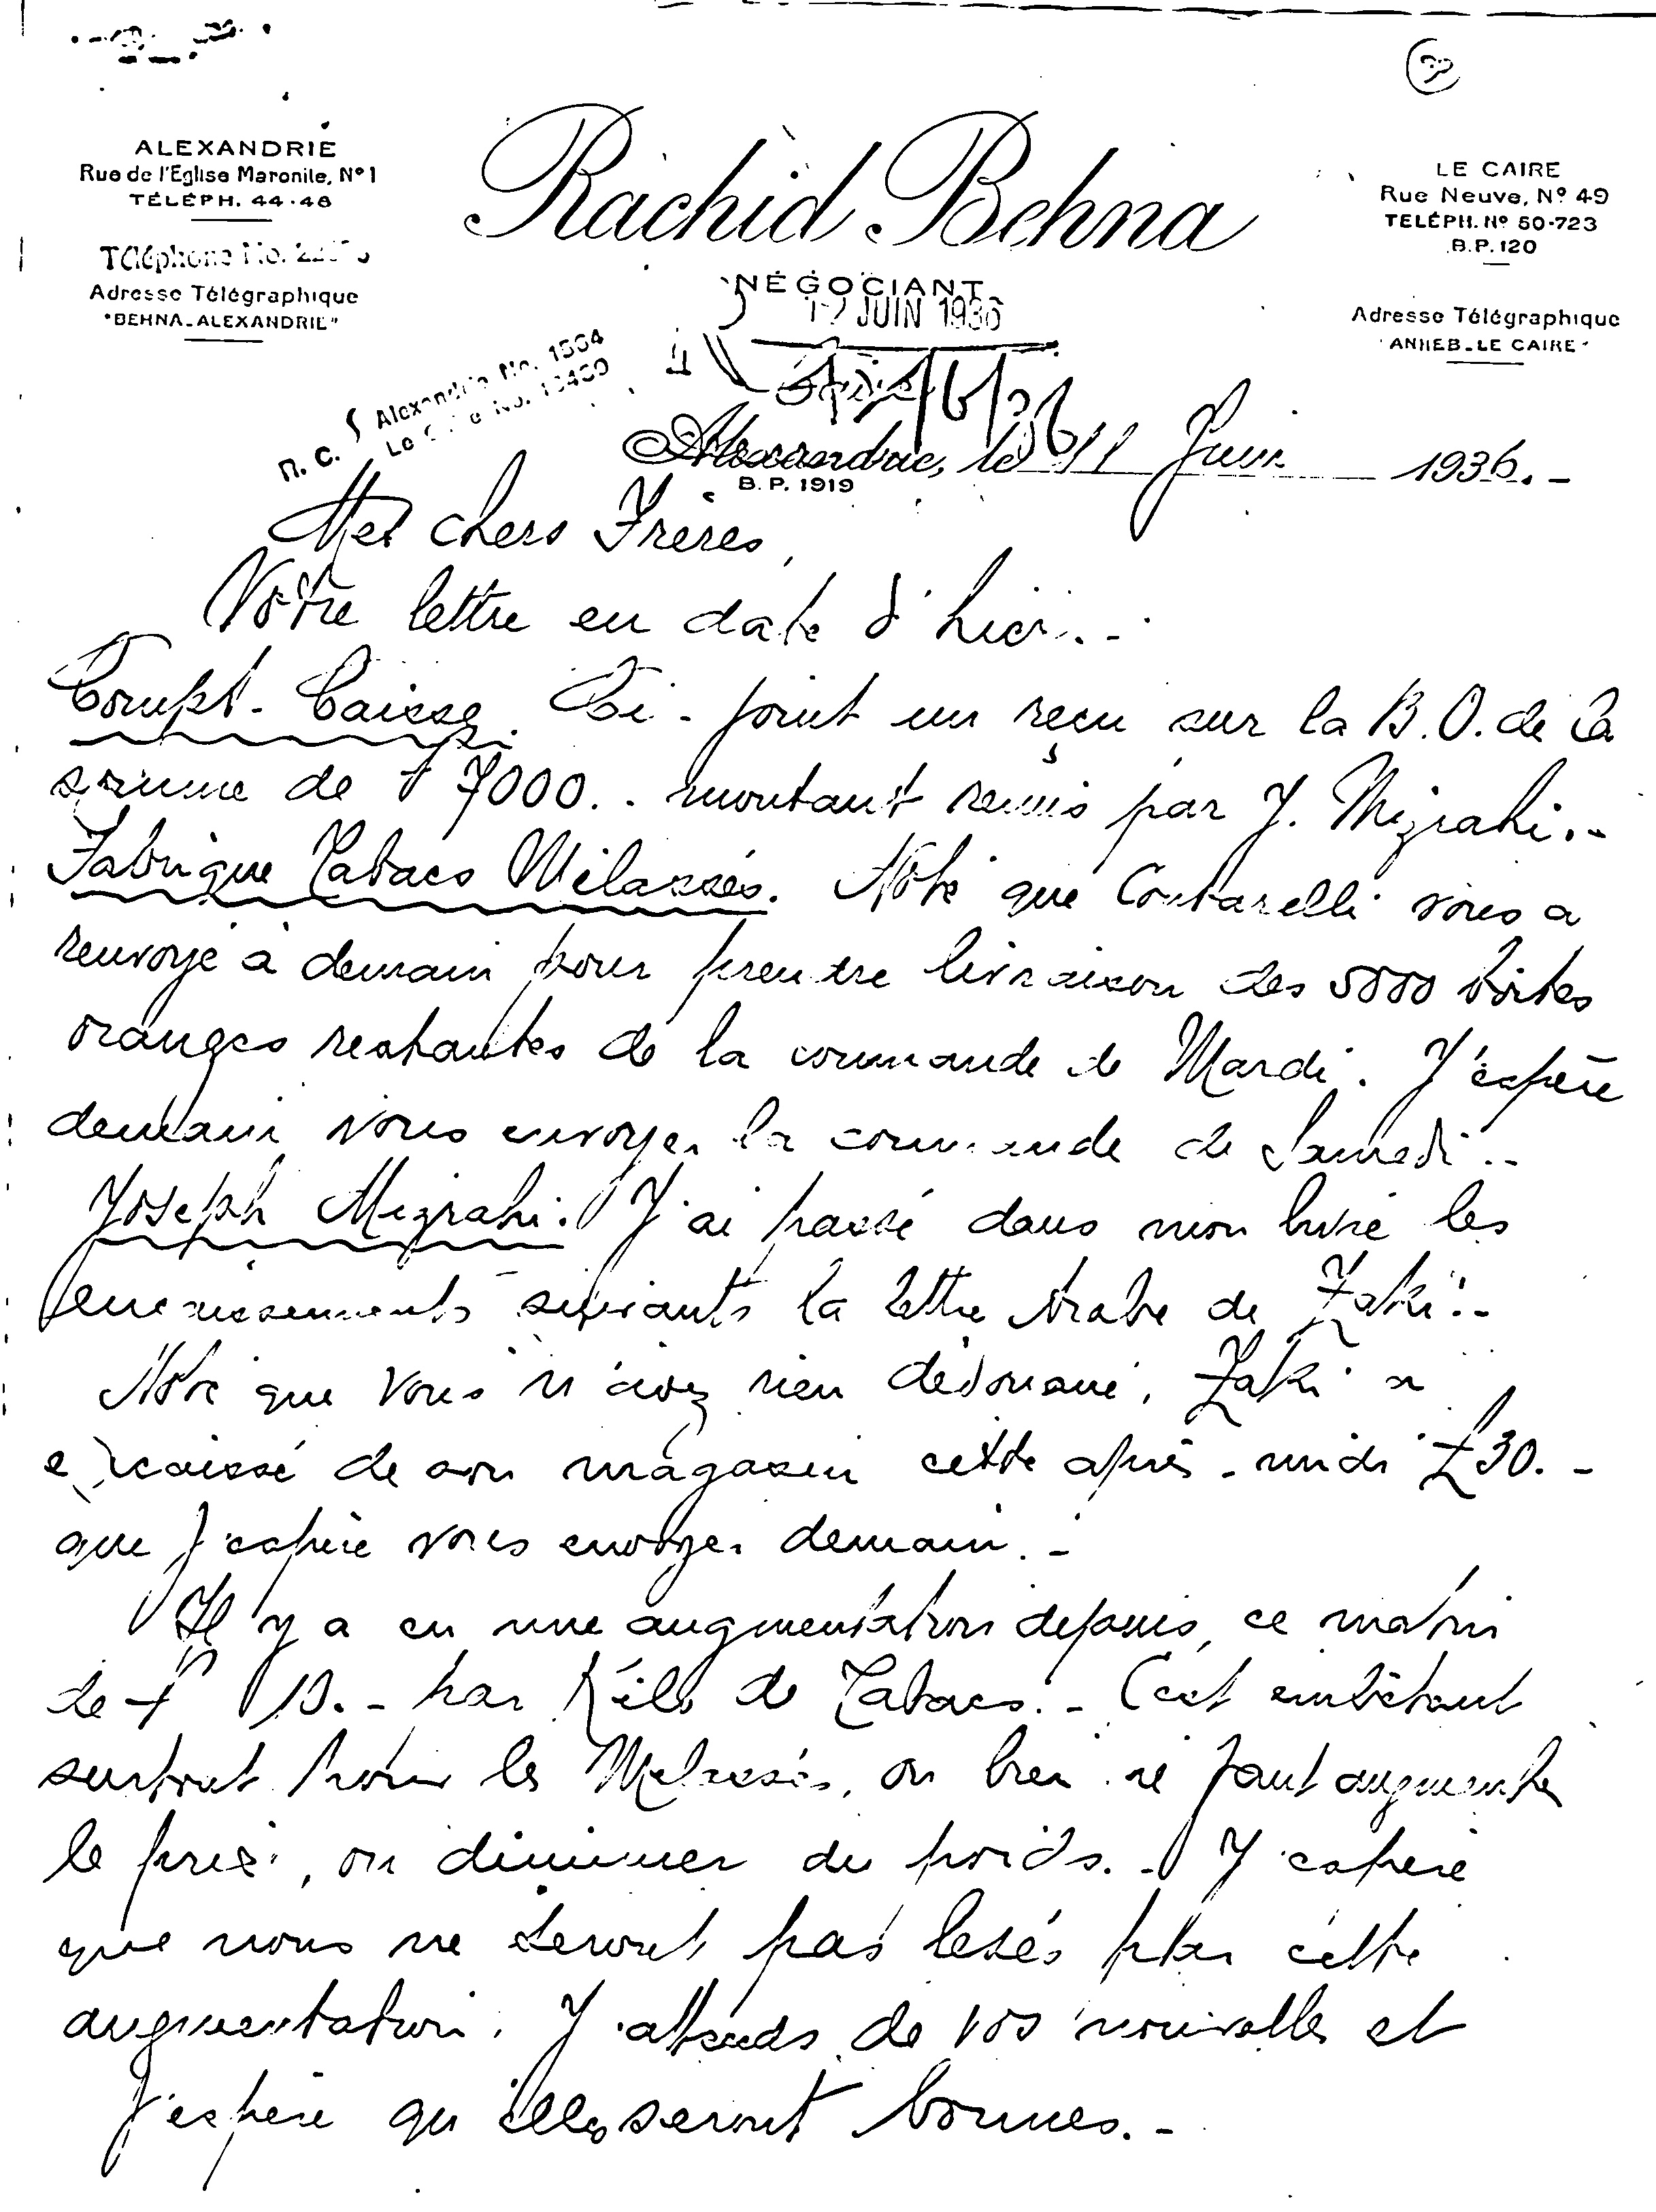 ALEXANDRIE
Rue de l'Eglise Maronite, Nº 1
TÉLÉPH. 44-48
Téléphone No.
Adresse Télégraphique
"BEHNA-ALEXANDRIE"
Rachid Behna
NÉGOCIANT
LE CAIRE
Rue Neuve, Nº 49
TELÉPH. Nº 50-723
B.P. 120
Adresse Télégraphique
"ANHEB-LE CAIRE"
12 JUIN 1936
R. C. Alexandrie No. 1564
Le Caire No.
Alexandrie, le 11 Juin 1936.-
B. P. 1919
Mes chers Frères,
Votre lettre en date d'hier.-
Compt-Caisse. Ci-joint un reçu sur la B.O. de la
somme de 7000.- montant remis par J. Mizrahi.-
Fabrique Tabacs Mélassés. Noté que Contarelli vous a
renvoyé à demain pour prendre livraison des 5000 boites
oranges restantes de la commande de Mardi. J'espère
demain vous envoyer la commande de Samedi.-
Joseph Mizrahi. J'ai passé dans mon livre les
encaissements suivants la lettre Arabe de Zaki.-
Noté que vous n'avez rien dédouané, Zaki a
encaissé de son magasin cette après-midi £ 30.-
que j'espère vous envoyer demain.-
Il y a eu une augmentation depuis ce matin
de 13.- par Kilo de Tabacs.- C'est embêtant
surtout pour les Mélassés, ou bien il faut augmenter
le prix, ou diminuer du poids.- J'espère
que nous ne seront pas lésés par cette
augmentation. J'attends de vos nouvelles et
j'espère qu'elles seront bonnes.-